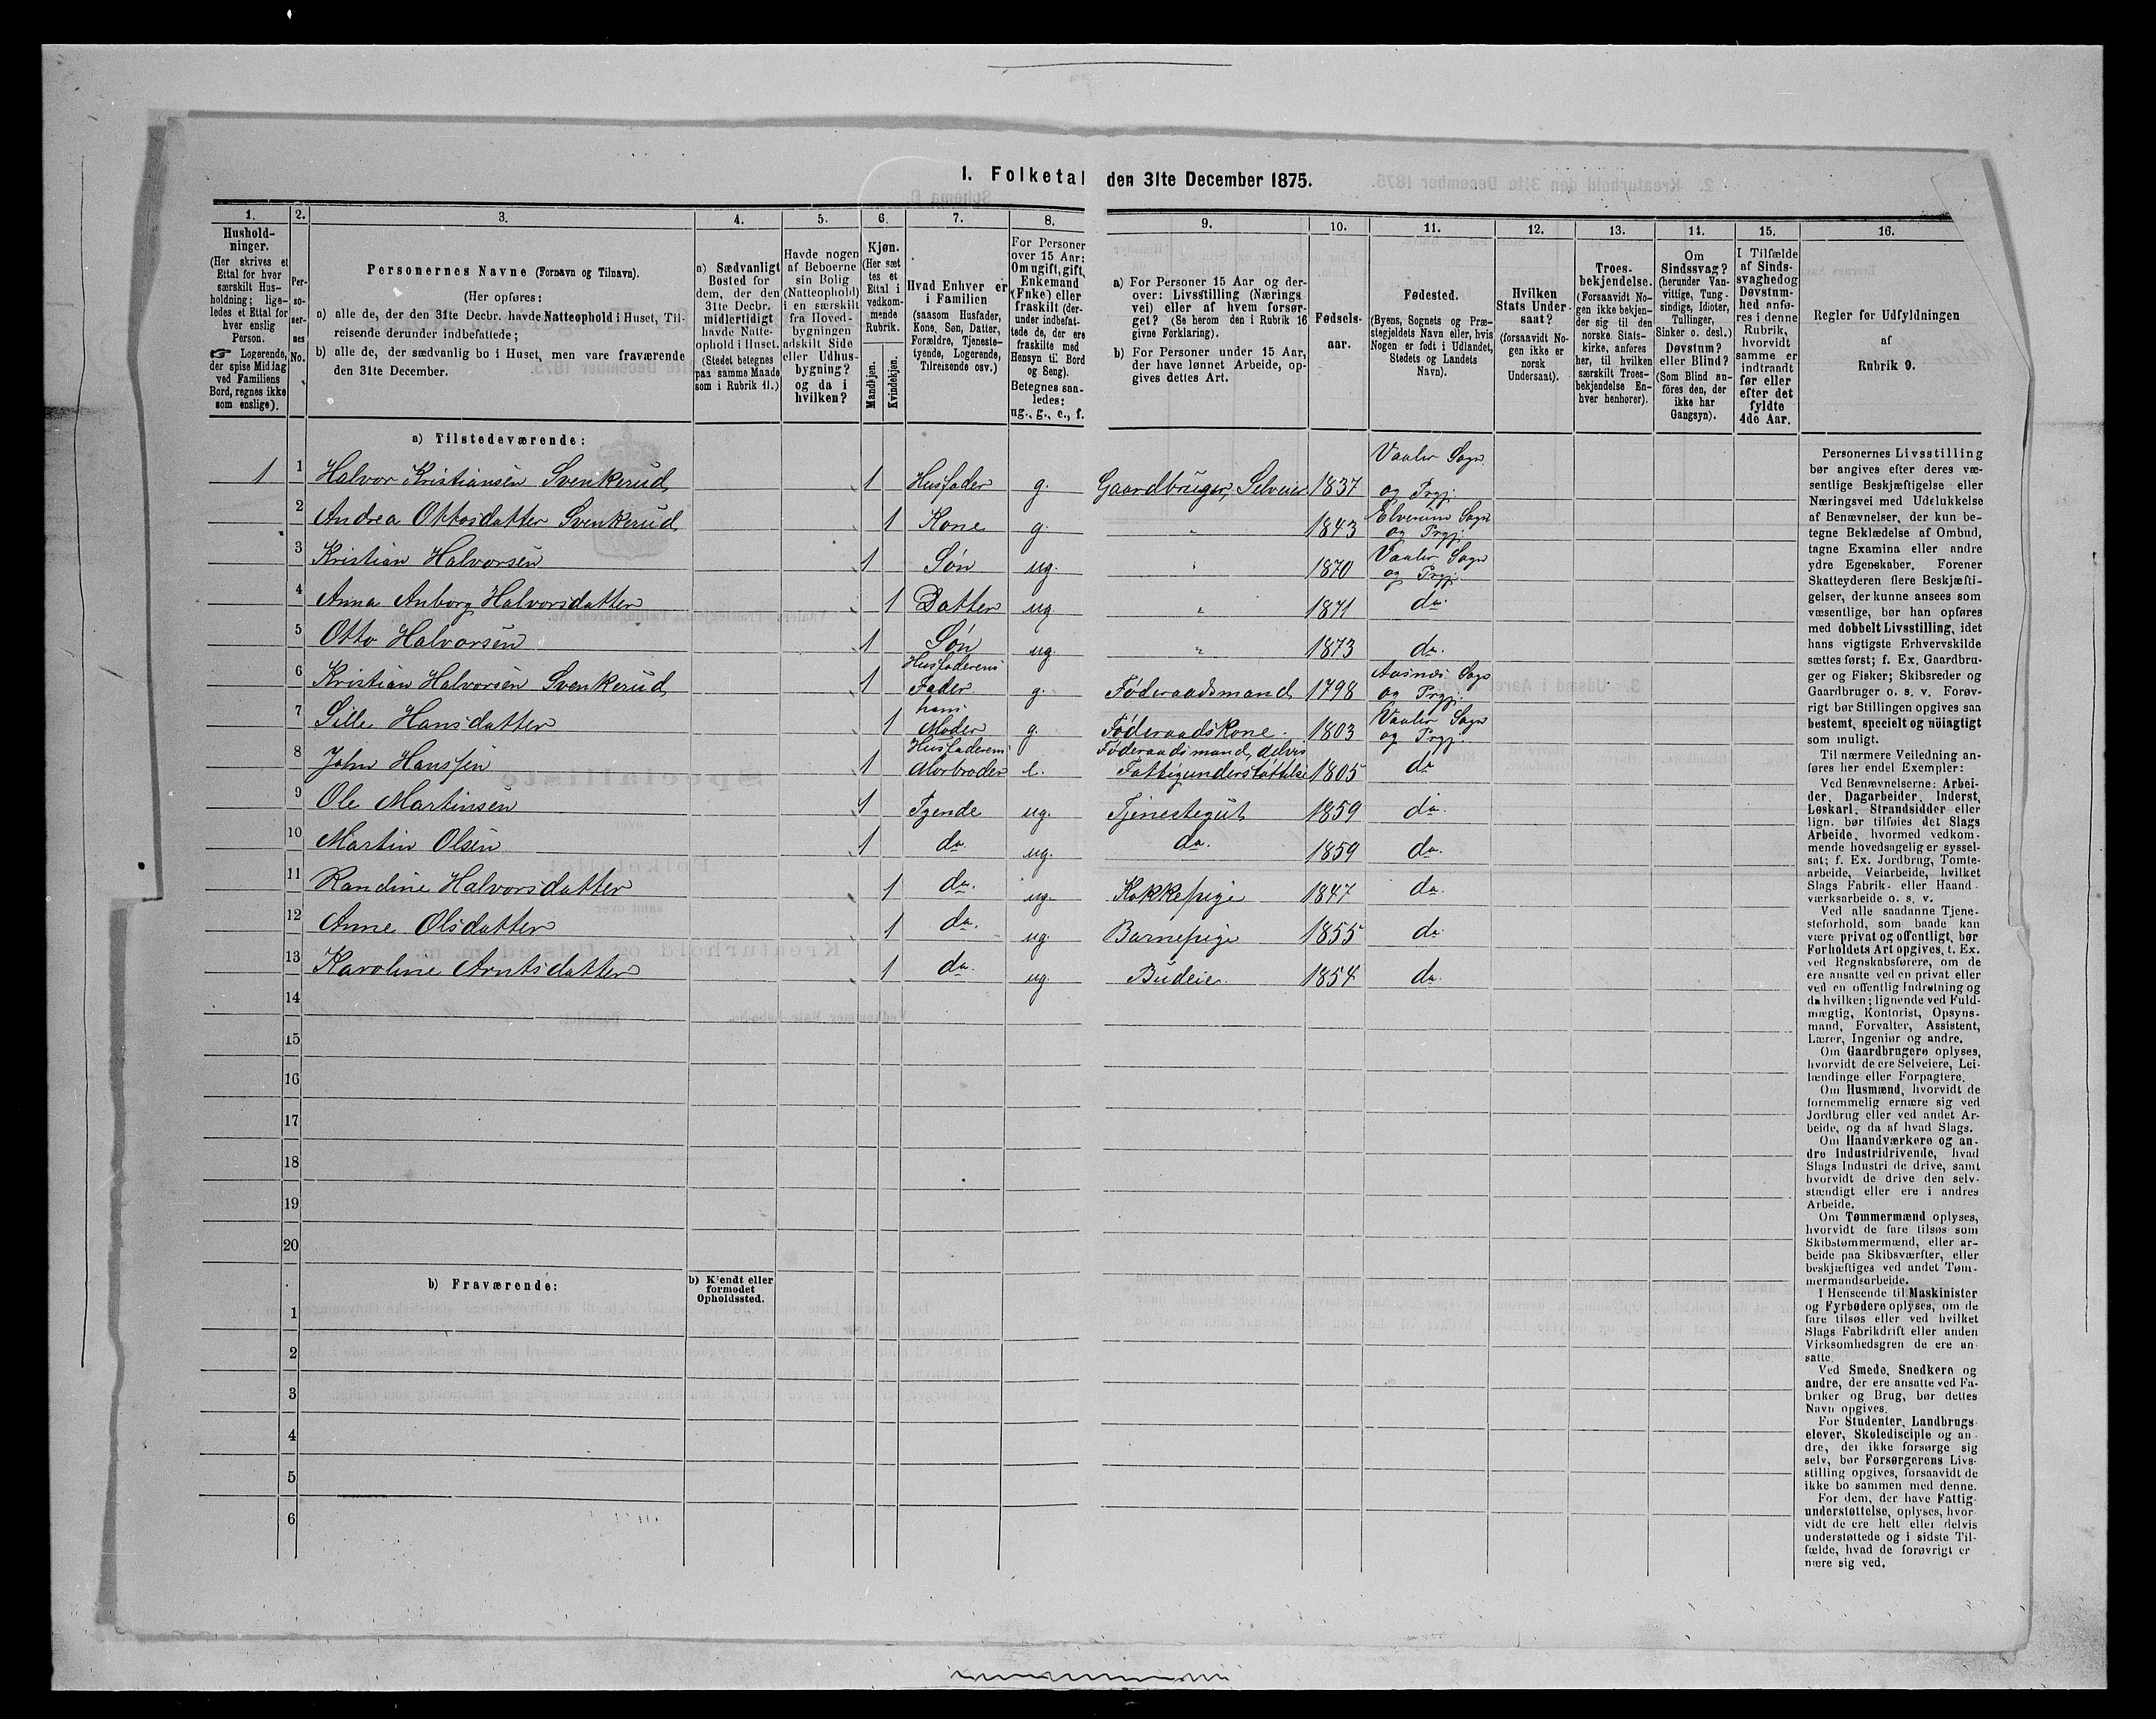 1. Folketal den 31te December 1875.
1. 2. 3. 4. 5. 6. 7. 8. 9. 10. 11. 12. 13. 14. 15. 16.
Hushold-
ninger.
(Her skrives et
Ettal for hver
særskilt Hus-
holdning; lige-
ledes et Ettal for
hver enslig
Person.
☞ Logerende,
der spise Middag
ved Familiens
Bord, regnes ikke
som enslige).
Per-
so-
ner-
nes
No.
Personernes Navne (Fornavn og Tilnavn).
(Her opføres:
a) alle de, der den 31te Decbr. havde Natteophold i Huset, Til-
reisende derunder indbefattede;
b) alle de, der sædvanlig bo i Huset, men vare fraværende
den 31te December.
a) Sædvanligt
Bosted for
dem, der den
31te Decbr.
midlertidigt
havde Natte-
ophold i Huset.
(Stedet betegnes
paa samme Maade
som i Rubrik 11.)
Havde nogen
af Beboerne
sin Bolig
(Natteophold)
i en særskilt
fra Hoved-
bygningen
adskilt Side
eller Udhus-
bygning?
og da i
hvilken?
Kjøn.
(Her sæt
tes et
Ettal i
vedkom-
mende
Rubrik.
Mandkjøn.
Kvindekjøn.
Hvad Enhver er
i Familien
(saasom Husfader,
Kone, Søn, Datter,
Forældre, Tjeneste-
tyende, Logerende,
Tilreisende osv.)
For Personer
over 15 Aar:
Om ugift, gift,
Enkemand
(Enke) eller
fraskilt (der-
under indbefat-
tede de, der ere
fraskilte med
Hensyn til Bord
og Seng).
Betegnes saa-
ledes:
ug., g., e., f.
a) For Personer 15 Aar og der-
over: Livsstilling (Nærings
vei) eller af hvem forsør-
get? (Se herom den i Rubrik 16
givne Forklaring).
b) For Personer under 15 Aar,
der have lønnet Arbeide, op-
gives dettes Art.
Fødsels-
aar.
Fødested.
(Byens, Sognets og Præ-
stegjeldets Navn eller, hvis
Nogen er født i Udlandet,
Stedets og Landets
Navn).
Hvilken
Stats Under-
saat?
(forsaavidt No-
gen ikke er
norsk
Undersaat).
Troes-
bekjendelse.
(Forsaavidt No-
gen ikke bekjen-
der sig til den
norske Stats-
kirke, anføres
her, til hvilken
særskilt Troes-
bekjendelse En-
hver henhører).
Om
Sindssvag?
(herunder Van-
vittige, Tung-
sindige, Idioter,
Tullinger,
Sinker o. desl.)
Døvstum?
eller Blind?
(Som Blind an-
føres den, der
ikke har
Gangsyn).
I Tilfælde
af Sinds-
svaghed og
Døvstum-
hed anfø-
res i denne
Rubrik,
hvorvidt
samme er
indtraadt
før eller
efter det
fyldte
4de Aar.
Regler for Udfyldningen
af
Rubrik 9.
a) Tilstedeværende:
Vaaler Sogn
1 1 Halvor Kristiansen Svenkerud 1 Husfader g. Gaardbruger, Selveier 1837 og Prgj.
2 Andrea Ottosdatter Svenkerud 1 Kone g. " 1843 Elverum Sogn
og Prgj.
3 Kristian Halvorsen 1 Søn ug. " 1870 Vaaler Sogn
og Prgj.
4 Anna Anborg Halvorsdatter 1 Datter ug " 1871 do.
5 Otto Halvorsen 1 Søn ug " 1873 do.
6 Kristian Halvorsen Svenkerud 1 Husfaderens
Fader g. Føderaadsmand 1798 Aasnæs Sogn
og Prgj.
7 Sille Hansdatter 1 hans
Moder g. Føderaadskone. 1803 Vaaler Sogn
og Prgj.
8 John Hanssen 1 Husfaderens
Morbroder e. Føderaadsmand, delvis
Fattigunderstøttelse 1805 do
9 Ole Martinsen 1 Tyende ug. Tjenestegut 1859 do.
10 Martin Olsen 1 do. ug. do. 1859 do.
11 Randine Halvorsdatter 1 do. ug. Kokkepige 1847 do.
12 Anne Olsdatter 1 do. ug. Barnepige 1855 do.
13 Karoline Arntsdatter 1 do. ug Budeie. 1854 do.
14
15
16
17
18
19
20
b) Fraværende:
b) Kjendt eller
formodet
Opholdssted.
1
2
3
4
5
6
Personernes Livsstilling
bør angives efter deres væ-
sentlige Beskjæftigelse eller
Næringsvei med Udelukkelse
af Benævnelser, der kun be-
tegne Beklædelse af Ombud,
tagne Examina eller andre
ydre Egenskaber. Forener
Skatteyderen flere Beskjæfti-
gelser, der kunne ansees som
væsentlige, bør han opføres
med dobbelt Livsstilling, idet
hans vigtigste Erhvervskilde
sættes først; f. Ex. Gaardbru-
ger og Fisker; Skibsreder og
Gaardbruger o. s. v. Forøv-
rigt bør Stillingen opgives saa
bestemt, specielt og nøiagtigt
som muligt.
Til nærmere Veiledning an-
føres her endel Exempler:
Ved Benævnelserne: Arbei-
der, Dagarbeider, Inderst,
Løskarl, Strandsidder eller
lign. bør tilføies det Slags
Arbeide, hvormed vedkom-
mende hovedsagelig er syssel-
sat; f. Ex. Jordbrug, Tomte-
arbeide, Veiarbeide, hvilket
Slags Fabrik- eller Haand-
værksarbeide o. s. v.
Ved alle saadanne Tjene-
steforhold, som baade kan
være privat og offentligt, bør
Forholdets Art opgives, t. Ex.
ved Regnskabsførere, om de
ere ansatte ved en privat eller
ved en offentlig Indretning og
da hvilken; lignende ved Fuld-
mægtig, Kontorist, Opsyns-
mand, Forvalter, Assistent,
Lærer, Ingeniør og andre.
Om Gaardbrugere oplyses,
hvorvidt de ere Selveiere, Lei-
lændinge eller Forpagtere.
Om Husmænd, hvorvidt de
fornemmelig ernære sig ved
Jordbrug eller ved andet Ar-
beide, og da af hvad Slags.
Om Haandværkere og an-
dre Industridrivende, hvad
Slags Industri de drive, samt
hvorvidt de drive den selv-
stændigt eller ere i andres
Arbeide.
Om Tømmermænd oplyses,
hvorvidt de fare tilsøs som
Skibstømmermænd, eller ar-
beide paa Skibsværfter, eller
beskjæftiges ved andet Tøm-
mermandsarbeide.
I Henseende til Maskinister
og Fyrbødere oplyses, om de
fare tilsøs eller ved hvilket
Slags Fabrikdrift eller anden
Virksomhedsgren de ere an-
satte.
Ved Smede, Snedkere og
andre, der ere ansatte ved Fa-
briker og Brug, bør dettes
Navn opgives.
For Studenter, Landbrugs-
elever, Skoledisciple og an-
dre, der ikke forsørge sig
selv, bør Forsørgerens Livs-
stilling opgives, forsaavidt de
ikke bo sammen med denne.
For dem, der have Fattig-
understøttelse, oplyses, hvor-
vidt de ere helt eller delvis
understøttede og i sidste Til-
fælde, hvad de forøvrigt er
nære sig ved.